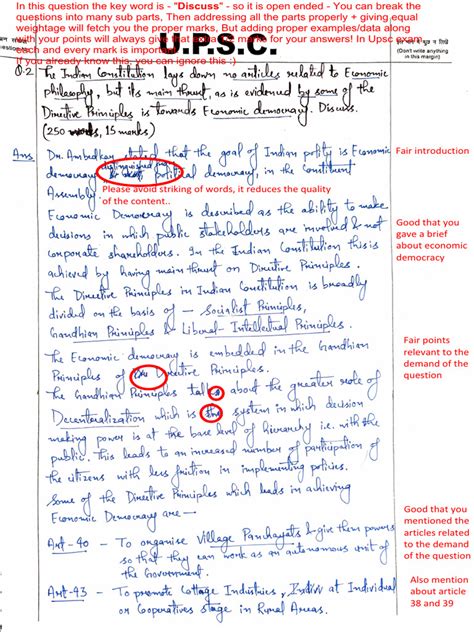 In this question the key word is - "Discuss" - so it is open ended - You can break the
questions into many sub parts, Then addressing all the parts properly + giving equal
weightage will fetch you the proper marks, But adding proper examples/data along
with your points will always give
for your answers! In Upsc exam
each and every mark is important
If you already know this, you can ignore this :)
U.P.S.C.
(Don't write anything
in this margin)
Q.2 The Indian Constitution lays down no articles related to Economic
philosophy, but its main thrust, as is evidenced by some of the
Directive Principles is towards Economic democracy. Discuss.
(250 words, 15 marks)
Ans Dr. Ambedkar stated that the goal of Indian polity is Economic
Fair introduction
democracy distinguished from political democracy, in the Constituent
Assembly.
Please avoid striking of words, it reduces the quality
of the content..
Economic Democracy is described as the ability to make
decisions in which public stakeholders are involved & not
corporate shareholders. In the Indian Constitution this is
achieved by having main thrust on Directive Principles.
Good that you
gave a brief
about economic
democracy
The Directive Principles in Indian Constitution is broadly
divided on the basis of – Socialist Principles,
Gandhian Principles & Liberal-Intellectual Principles.
The Economic democracy is embedded in the Gandhian
Principles of Directive Principles.
Fair points
relevant to the
demand of the
question
The Gandhian Principles talks about the greater role of
Decentralization which is the system in which decision
making power is at the base level of hierarchy i.e. with the
public. This leads to an increased number of participation of
the citizens with less friction in implementing policies.
Some of the Directive Principles which leads in achieving
Economic Democracy are —
Good that you
mentioned the
articles related
to the demand
of the question
Art-40 - To organise Village Panchayats & give them powers
so that they can work as an autonomous unit of
the Government.
Art-43 - To promote Cottage Industries, at Individual
or Cooperatives stage in Rural Areas.
Also mention
about article
38 and 39